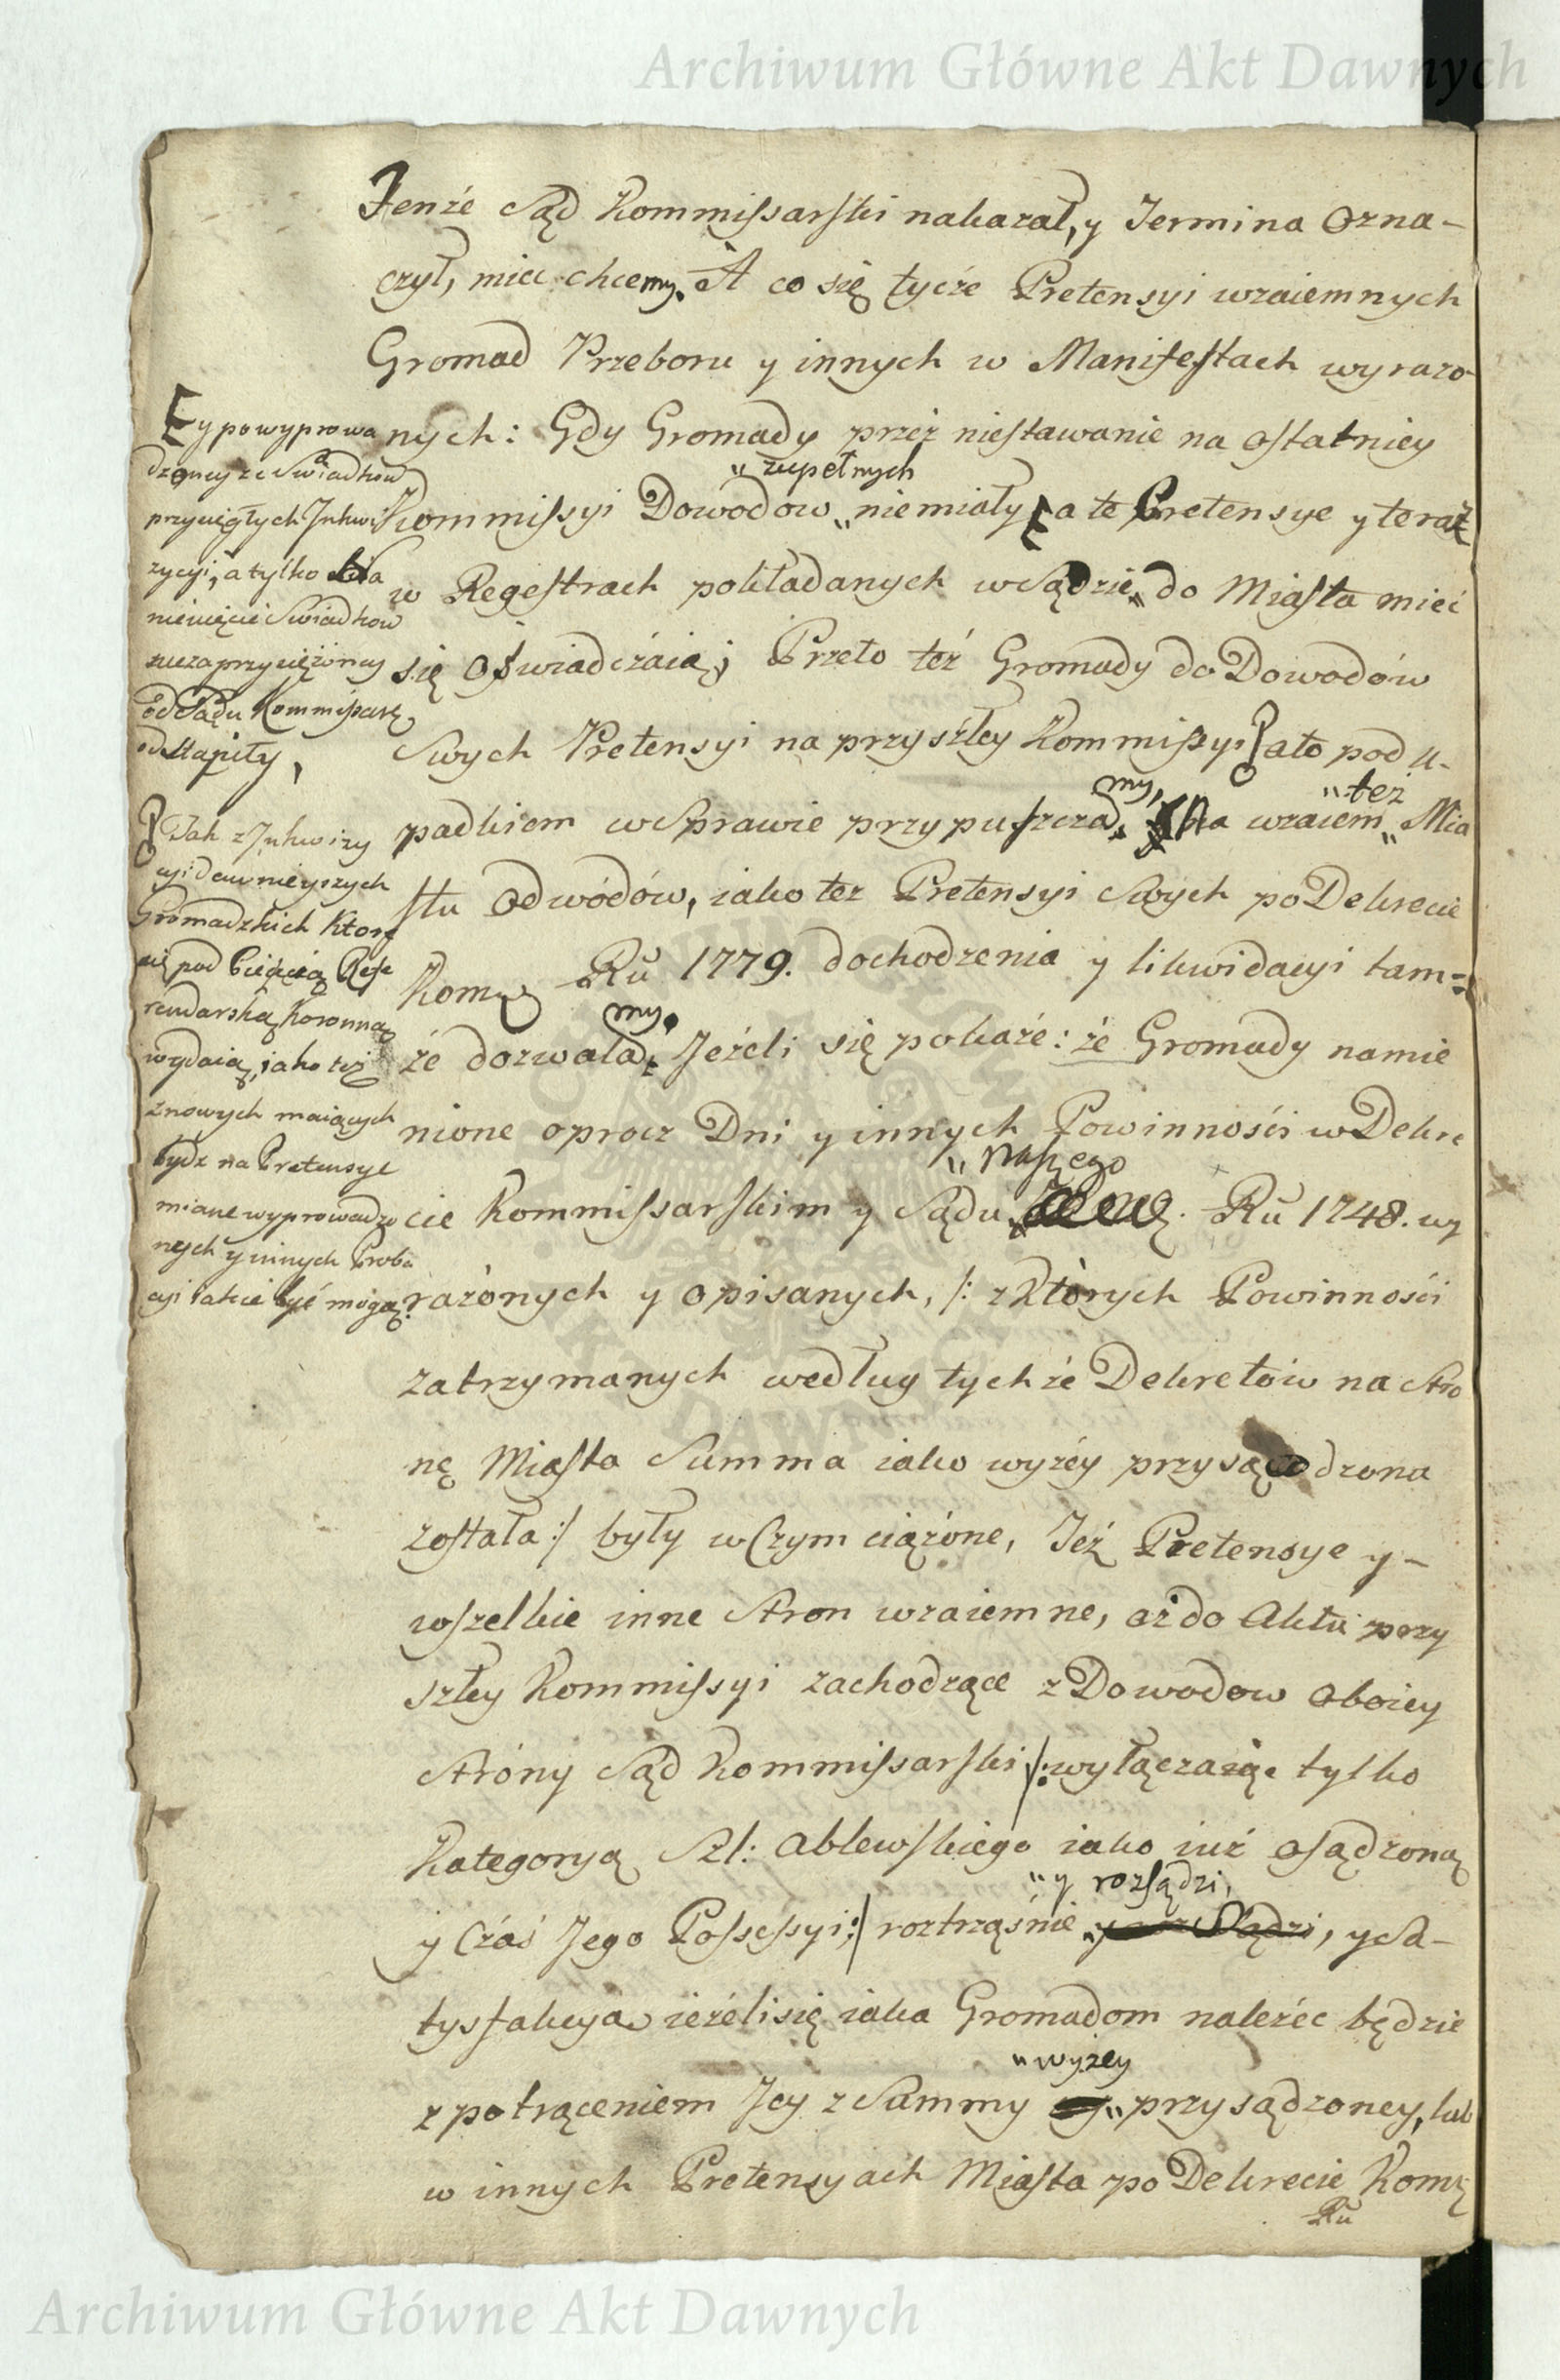 Archiwum Główne Akt Dawnych
Tenże Sąd Kommissarski nakazał, y Termina Ozna-
czył, miec chcemy. A co się tycże Pretensyi wzaiemnych
Gromad Przeboru y innych w Manifestach wyrazo-
nych: Gdy Gromady przez niestawanie na ostatniey
"zupełnych
Kommissyi Dowodow " niemiały a te Pretensye y teraz
w Regestrach pokładanych w Sądzie " do Miasta mieć
się oświadczaią; Przeto też Gromady do Dowodów
Swych Pretensyi na przyszłey Kommissyi ato pod u-
my, "też
padkiem w Sprawie przypuszcza wzaiem " Mia
stu Odwódów, iako tez Pretensyi Swych po Dekrecie
Ru 1779. dochodzenia y likwidacyi tam=
my.
że dozwala Jeżeli się pokaże: że Gromady namie
nione oprocz Dni y innych Powinnośći w Dekre
" Naszego
cie Kommissarskim y Sądu " Ru 1748. wy
rażonych y opisanych, /: z których Powinnośći
zatrzymanych według tychże Dekretów na Stro
nę Miasta Summa iako wyżey przysądzona
została :/ były w Czym ciążone, Też Pretensye y-
wszelkie inne Stron wzaiemne, aż do Aktu przy
szłey Kommissyi zachodzące z Dowodow oboiey
Stróny Sąd Kommissarski /: wyłączaiąc tylko
Kategoryą Szl: Ablewskiego iako iuż osądzoną
" y rozsądzi,
y Czas Jego Possessyi :/ roztrząśnie " , y Sa-
tysfakcya ieżeli się iaka Gromadom należéc będzie
" wyżey
z potrąceniem Jey z Summy " przysądzoney, lub
w innych Pretensyach Miasta po Dekrecie Komą
Ru
y powyprowa
dzoney ze Swiadkow
przysięgłych Inkwi
zycyi, a tylko dla
Swiadkow
niezaprzysiężoney
od Sądu Kommissarz
odstąpiły,
Jak z Inkwizy
cyi dawnieyszych
Gromadzkich Które
się pod Pieczęcią Refe
rendarską Koronną
wydaią, iako też
znowych maiących
bydz na Pretensye
miane wyprowadzo
nych y innych Proba
cyi iakie być mogą.
Archiwum Główne Akt Dawnych